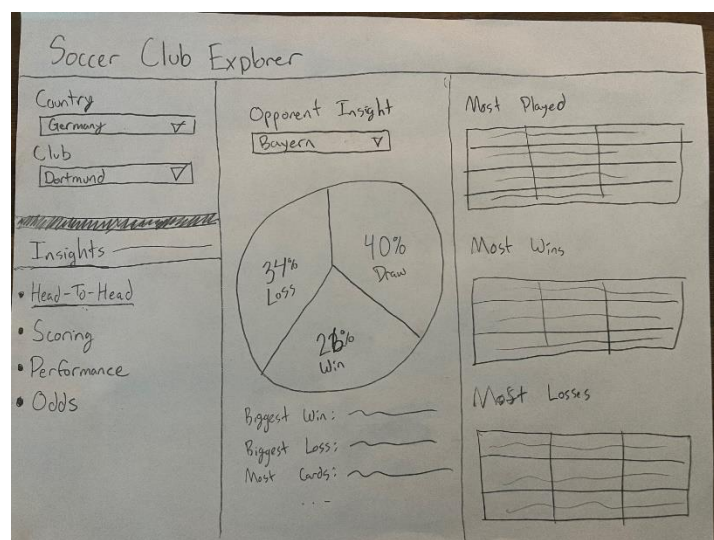 Soccer Club Explorer
Country
Germany
Club
Dortmund
Insights
• Head-To-Head
• Scoring
• Performance
• Odds
Opponent Insight
Bayern
34%
Loss
40%
Draw
Win
Biggest Win:
Biggest Loss:
Most Cards:
...
Most Played
Most Wins
Most Losses